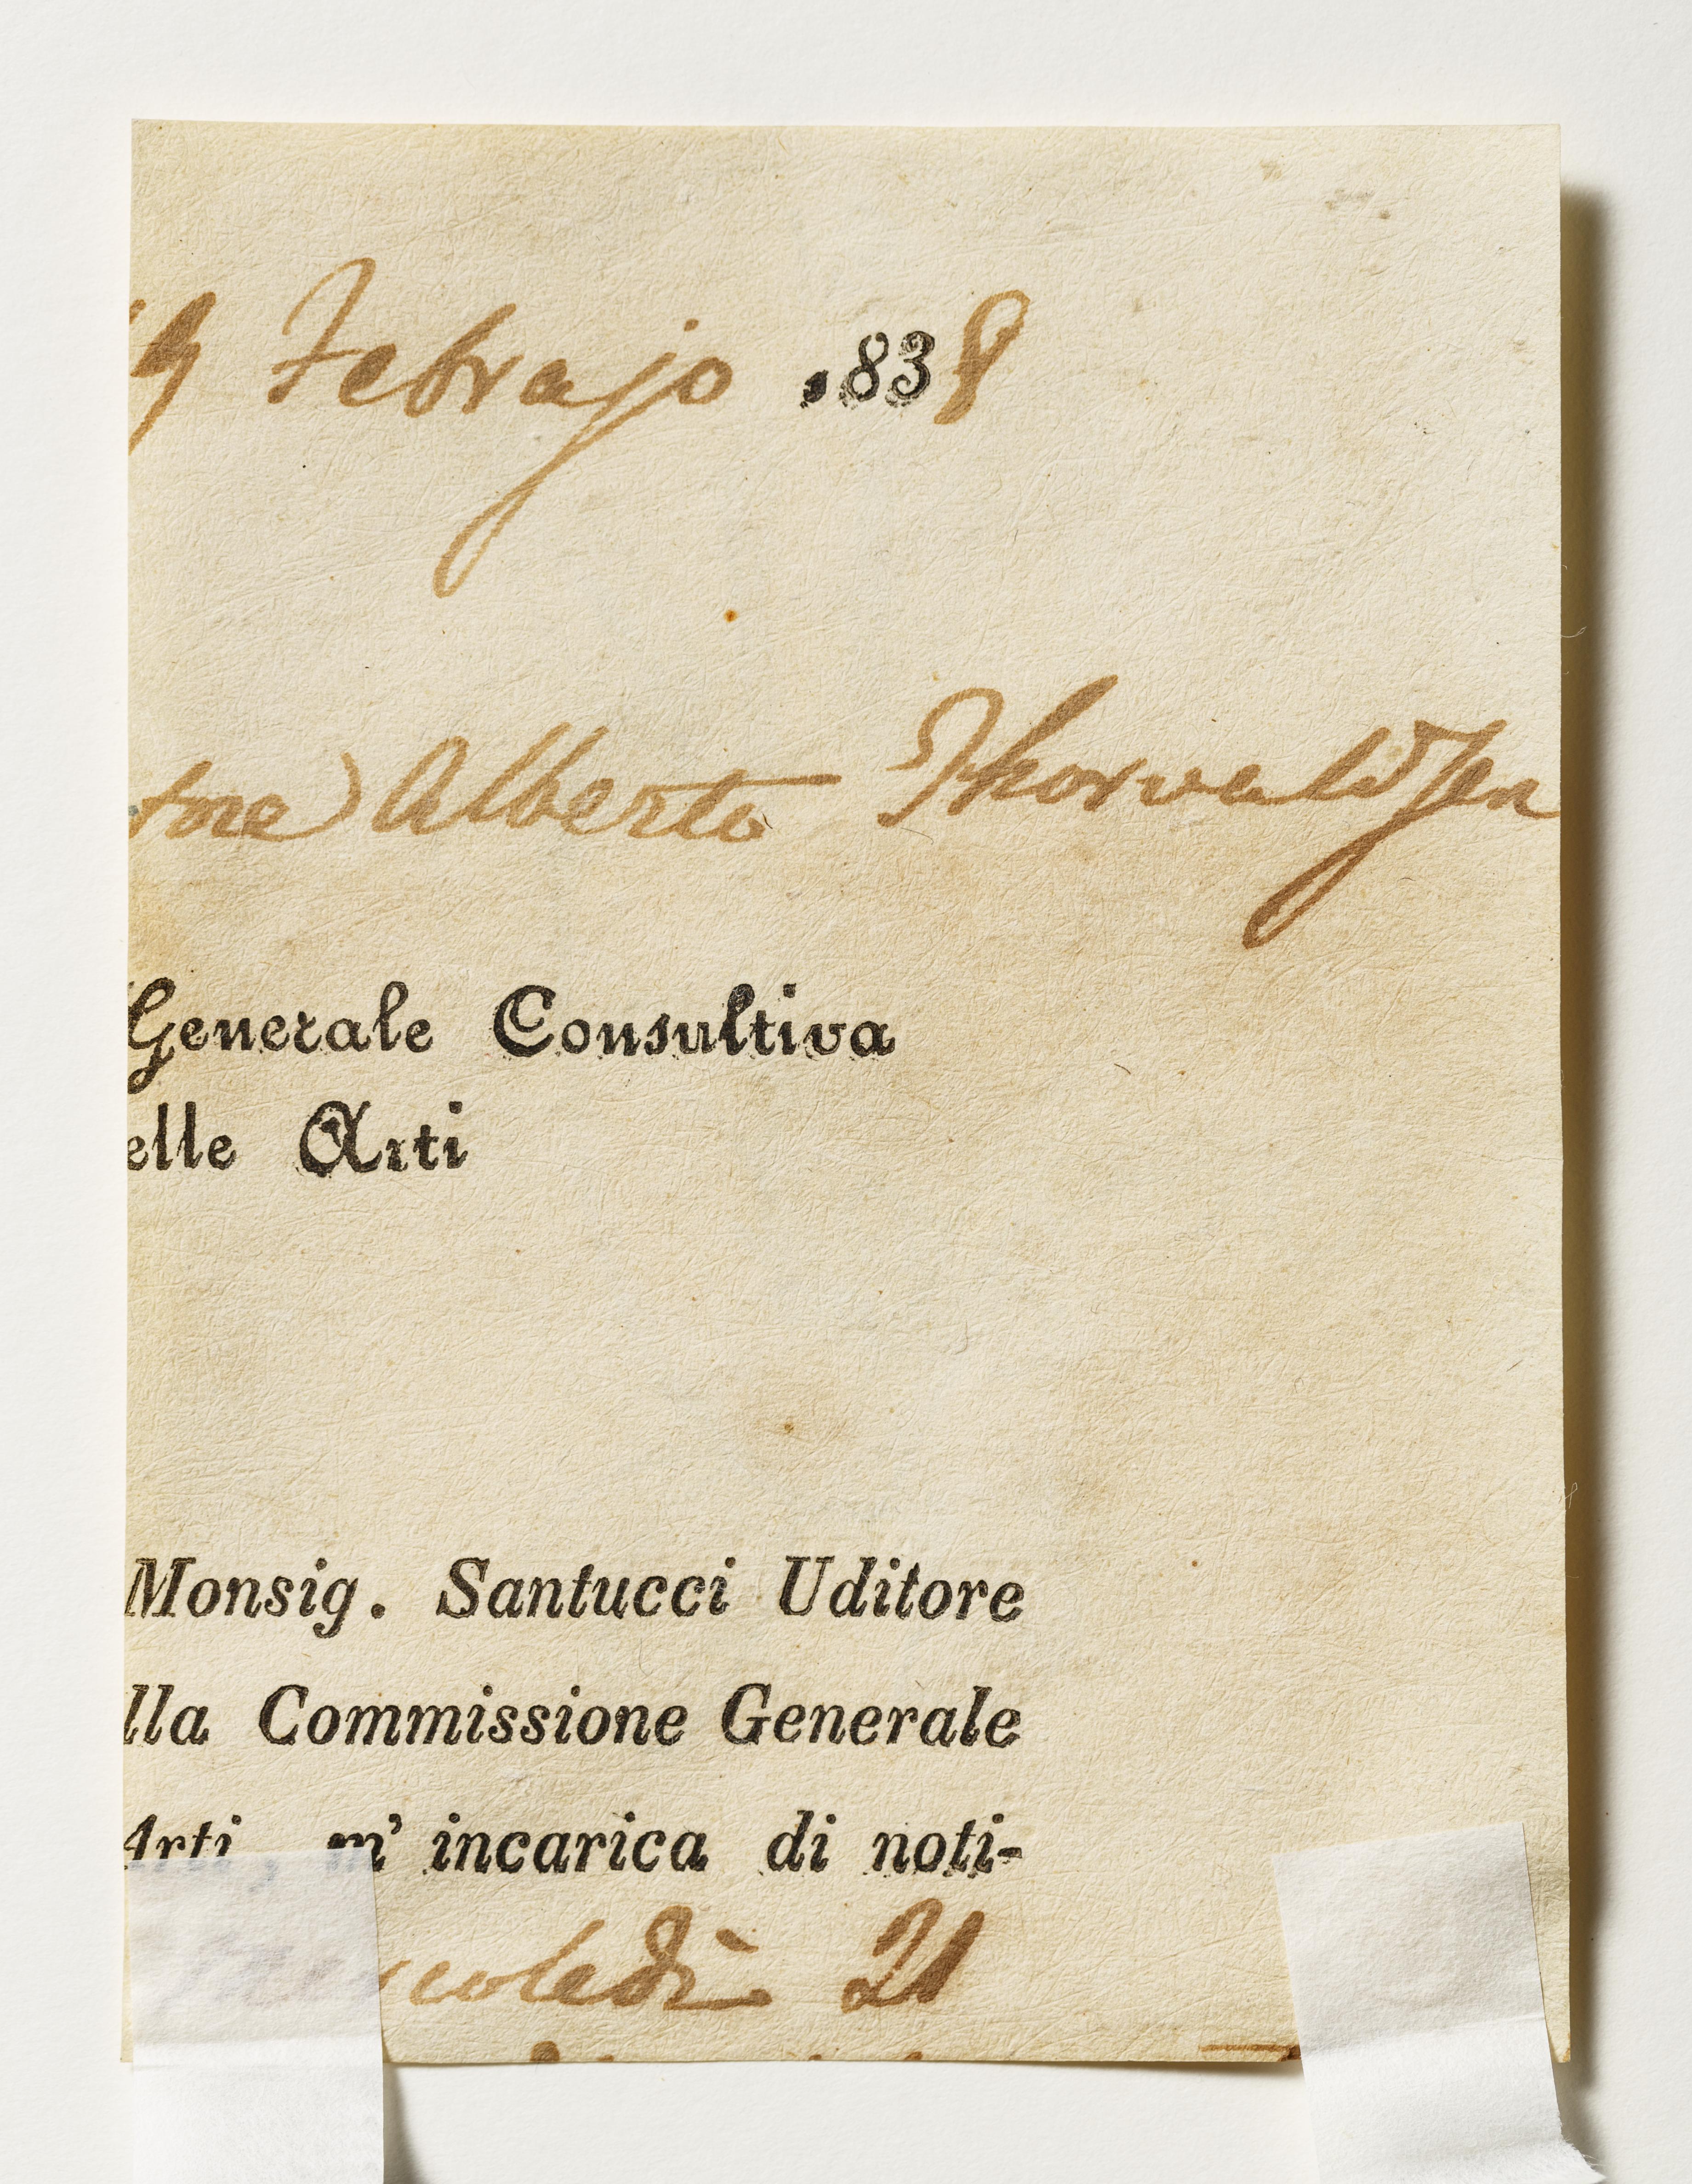 19 Febrajo 1838
tore Alberto Thorwaldsen
Generale Consultiva
elle Arti
Monsig. Santucci Uditore
lla Commissione Generale
Arti, m' incarica di noti-
rcoledì 21